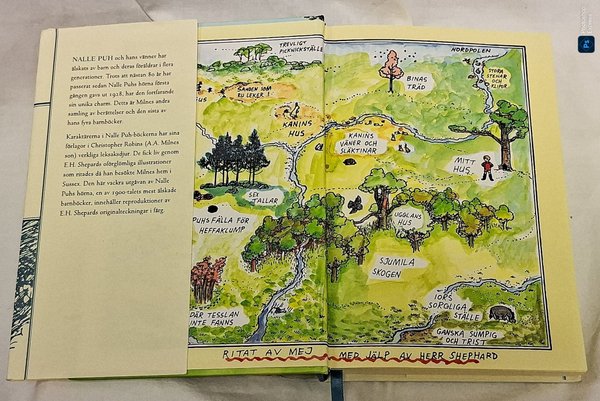 NALLE PUH och hans vänner har
älskats av barn och deras föräldrar i flera
generationer. Trots att nästan 80 år har
passerat sedan Nalle Puhs hörna första
gången gavs ut 1928, har den fortfarande
sin unika charm. Detta är Milnes andra
samling av berättelser och den sista av
hans fyra barnböcker.
Karaktärerna i Nalle Puh-böckerna har sina
förlagor i Christopher Robins (A.A. Milnes
son) verkliga leksaksdjur. De fick liv genom
E.H. Shepards oförglömliga illustrationer
som ritades då han besökte Milnes hem i
Sussex. Den här vackra utgåvan av Nalle
Puhs hörna, en av 1900-talets mest älskade
barnböcker, innehåller reproduktioner av
E.H. Shepards originalteckningar i färg.
TREVLIGT
PICKNICKSTÄLLE
SANDEN SOM
RU LEKER I
KANINS
HUS
SEX
TALLAR
PUHS FÄLLA FÖR
HEFFAKLUMP
DÄR TESSLAN
INTE FANNS
NORDPOLEN
BINAS
TRÄD
STORA
STENAR
OCH
KLIPOR
KANINS
VÄNER OCH
SLÄKTINAR
MITT
HUS
UGGLANS
HUS
SJUMILA
SKOGEN
IORS
SORGLIGA
STÄLLE
GANSKA SUMPIG
OCH TRIST
RITAT AV MEJ MED JÄLP AV HERR SHEPHARD
Ps